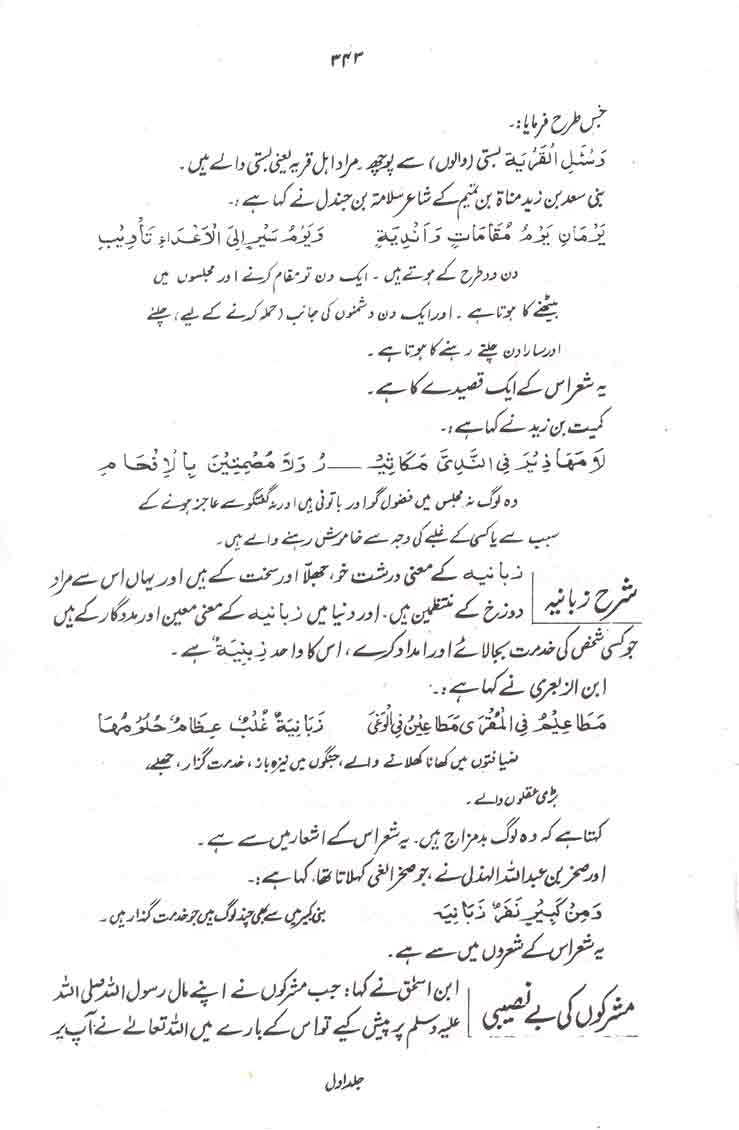 ۳۴۳
جس طرح فرمایا:۔
وَسْئَلِ الْقَرْیَةَ بستی (والوں) سے پوچھ۔ مراد اہل قریہ یعنی بستی والے ہیں۔
بنی سعد بن زید مناۃ بن تمیم کے شاعر سلامتہ بن جندل نے کہا ہے:۔
یَوْمَانِ یَوْمُ مُقَامَاتٍ وَاَنْدِیَةٍ وَیَوْمُ سَیْرٍ اِلَی الْاَعْدَاءِ تَأْوِیْبِ
دن دو طرح کے ہوتے ہیں۔ ایک دن تو مقام کرنے اور مجلسوں میں
بیٹھنے کا ہوتا ہے۔ اور ایک دن دشمنوں کی جانب (حملہ کرنے کے لیے) چلنے
اور سارا دن چلتے رہنے کا ہوتا ہے۔
یہ شعر اس کے ایک قصیدے کا ہے۔
کمیت بن زید نے کہا ہے:۔
لَا مَهَاذِیْرَ فِی النَّدِیِّ مَکَاثِیْـ ـــ رُ وَلَا مُصْمِتِیْنَ بِالْاِفْحَامِ
وہ لوگ نہ مجلس میں فضول گو اور باتونی ہیں اور نہ گفتگو سے عاجز ہونے کے
سبب سے یا کسی کے غلبے کی وجہ سے خاموش رہنے والے ہیں۔
شرح زبانیہ
زبانیہ کے معنی درشت خو، جھلّا اور سخت کے ہیں اور یہاں اس سے مراد
دوزخ کے منتظمین ہیں۔ اور دنیا میں زبانیہ کے معنی معین اور مددگار کے ہیں
جو کسی شخص کی خدمت بجا لائے اور امداد کرے، اس کا واحد زِبْنِیَةٌ ہے۔
ابن الزبعری نے کہا ہے:۔
مَطَاعِیْمُ فِی الْمَقْرَی مَطَاعِیْنُ فِی الْوَغَی زَبَانِیَةٌ غُلْبٌ عِظَامٌ حُلُوْمُهَا
ضیافتوں میں کھانا کھلانے والے، جنگوں میں نیزہ باز، خدمت گزار، جھلے،
بڑی عقلوں والے۔
کہتا ہے کہ وہ لوگ بدمزاج ہیں۔ یہ شعر اس کے اشعار میں سے ہے۔
اور صخر بن عبداللہ الہذلی نے، جو صخر الغی کہلاتا تھا، کہا ہے:۔
وَمِنْ کَبِیْرٍ نَفَرٌ زَبَانِیَه بنی کبیر میں سے بھی چند لوگ ہیں جو خدمت گذار ہیں۔
یہ شعر اس کے شعروں میں سے ہے۔
مشرکوں کی بے نصیبی
ابن اسحٰق نے کہا: جب مشرکوں نے اپنے مال رسول اللہ صلی اللہ
علیہ وسلم پر پیش کیے تو اس کے بارے میں اللہ تعالےٰ نے آپ پر
جلد اول